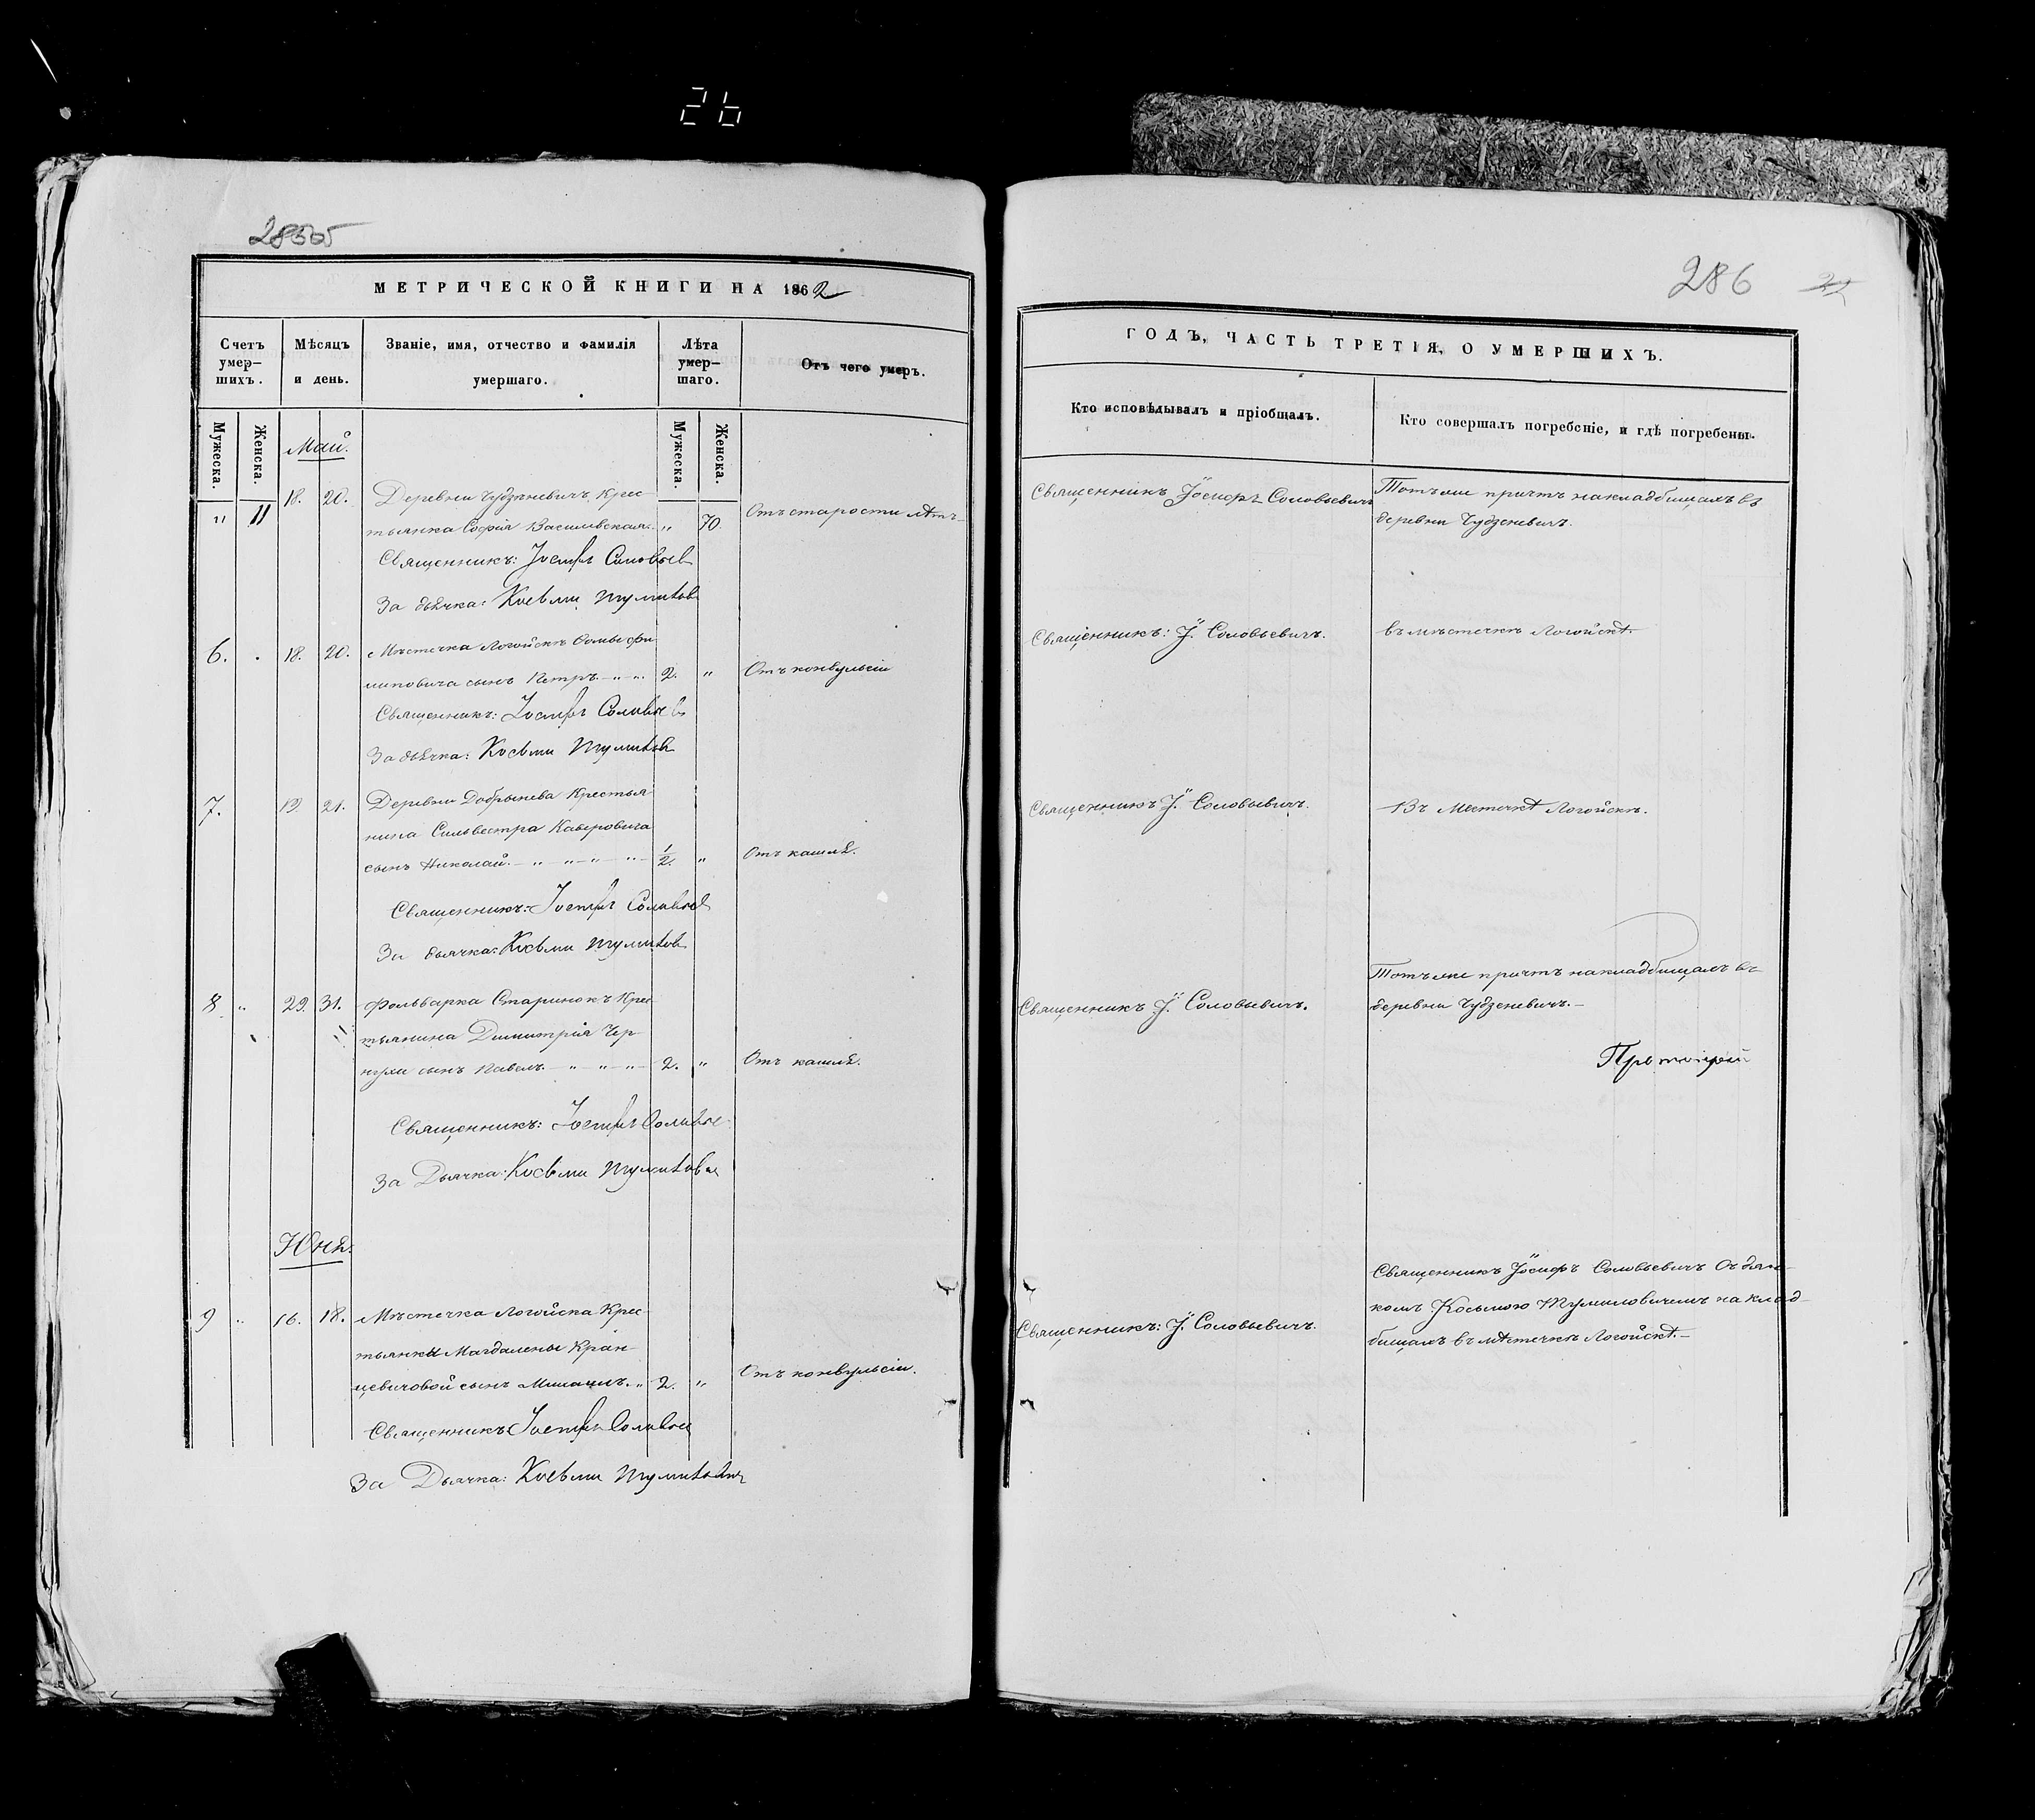 26
285об
МЕТРИЧЕСКОЙ КНИГИ НА 1862
Счетъ умер–шихъ.
Мѣсяцъ и день.
Званіе, имя, отчество и фамилія умершаго.
Лѣта умер–шаго.
Отъ чего умеръ.
Мужеска.
Женска.
Мужеска.
Женска.
Май.
" 11 18. 20. Деревни Чудзеневичъ Крес-
тьянка Софія Василевская. " 70. Отъ старости лѣтъ
Священникъ: Іосифъ Соловьев
За дьячка: Косьма Тумилов
6. . 18. 20. Мѣстечка Логойскъ Ѳомы Фи-
липовича сынъ Петръ. – " – ". 2. " Отъ конвульсіи
Священникъ: Іосифъ Соловьев
За дьячка: Косьма Тумилов
7. 19. 21. Деревни Добрынева Крестья-
нина Сильвестра Каберовича
сынъ Николай. – " – " – " – " – 1/2. " Отъ кашля.
Священникъ: Іосифъ Соловьев
За дьячка: Косьма Тумилов
8 " 29. 31. Фольварка Старинокъ Крес-
тьянина Димитрія Чер-
нухи сынъ Павелъ. – " – " – " – 2. " Отъ кашля.
Священникъ: Іосифъ Соловье
За Дьячка: Косьма Тумилови
Юнь.
9 " 16. 18. Мѣстечка Логойска Крес-
тьянки Магдалены Кран-
цевичовой сынъ Михаилъ. " 2. " Отъ конвульсіи.
Священникъ Іосифъ Соловье
За Дьячка: Косьма Тумилович
286
ГОДЪ, ЧАСТЬ ТРЕТІЯ, О УМЕРШИХЪ.
Кто исповѣдывалъ и пріобщалъ.
Кто совершалъ погребеніе, и гдѣ погребены.
Священникъ Іосифъ Соловьевичъ
Тотъ же причтъ на кладбищахъ въ
деревни Чудзеневичъ.
Священникъ: І. Соловьевичъ.
въ мѣстечкѣ Логойскѣ.
Священникъ І. Соловьевичъ.
Въ Местечкѣ Логойскѣ.
Священникъ І. Соловьевичъ.
Тотъ же причтъ на кладбищахъ въ
деревни Чудзеневичъ. –
Протоіерей
Священникъ: І. Соловьевичъ.
Священникъ Іосифъ Соловьевичъ Съ дьяч-
комъ Косьмою Тумиловичемъ на клад-
бищахъ въ мѣстечкѣ Логойскѣ. –